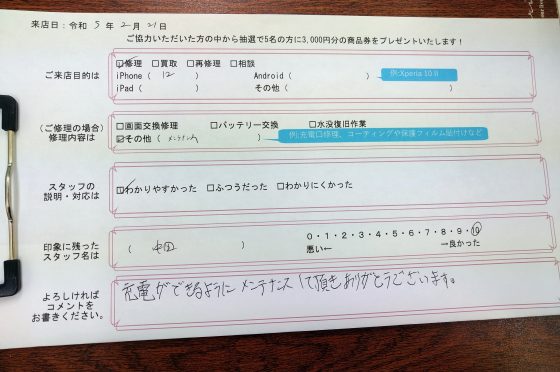 来店日：令和 5 年 2 月 21 日
ご協力いただいた方の中から抽選で5名の方に3,000円分の商品券をプレゼントいたします！
ご来店目的は
☑修理 □買取 □再修理 □相談
iPhone（ 12 ） Android（ 例:Xperia 10 II
iPad（ ） その他（ ）
（ご修理の場合）
修理内容は
□画面交換修理 □バッテリー交換 □水没復旧作業
☑その他（ メンテナンス ） 例:充電口修理、コーティングや保護フィルム貼付けなど
スタッフの
説明・対応は
☑わかりやすかった □ふつうだった □わかりにくかった
印象に残った
スタッフ名は
（ ）
0・1・2・3・4・5・6・7・8・9・10
悪い← →良かった
よろしければ
コメントを
お書きください。
充電ができるようにメンテナンスして頂きありがとうございます。